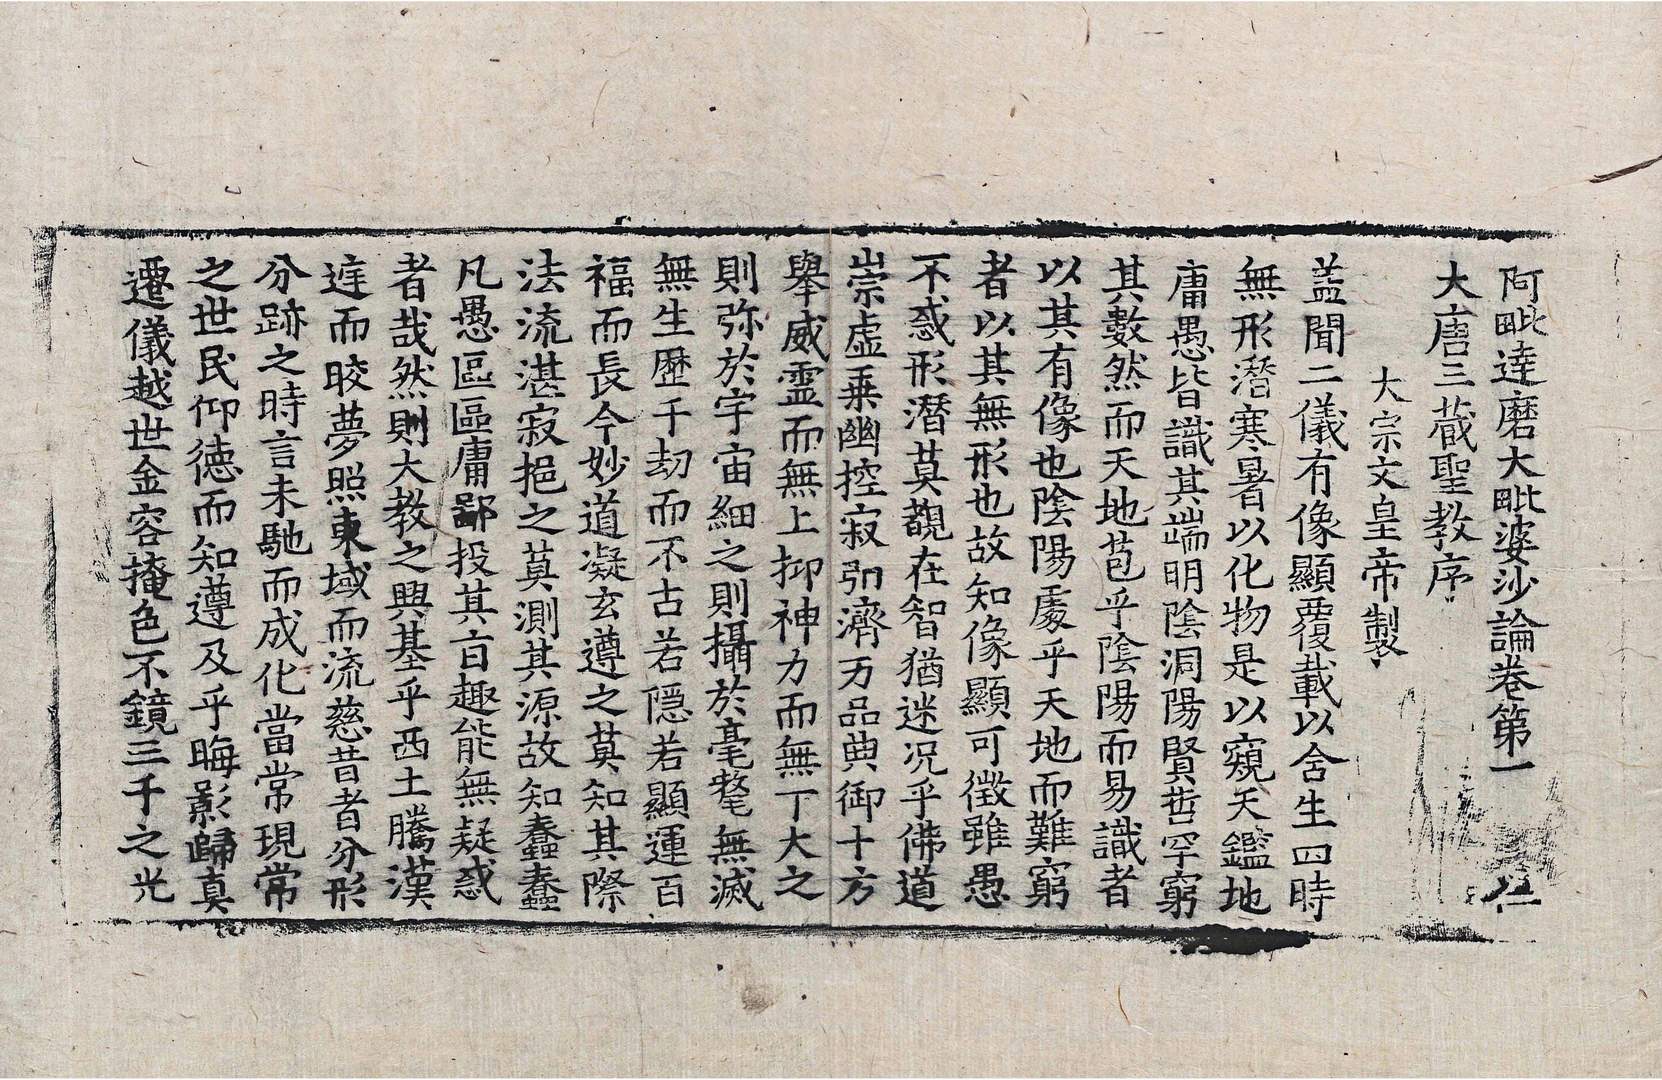 阿毗達磨大毗婆沙論卷第一
大唐三蔵聖教序
大宗文皇帝製
盖聞二儀有像顯覆載以含生四時
無形潛寒暑以化物是以窺天鑑地
庸愚皆識其端明陰洞陽賢哲罕窮
其數然而天地苞乎陰陽而易識者
以其有像也陰陽處乎天地而難窮
者以其無形也故知像顯可徵雖愚
不惑形潛莫覩在智猶迷况乎佛道
崇虛乗幽控寂引濟万品典御十方
舉威靈而無上抑神力而無下大之
則弥於宇宙細之則攝於毫氂無滅
無生歷千劫而不古若隱若顯運百
福而長今妙道凝玄遵之莫知其際
法流湛寂挹之莫測其源故知蠢蠢
凡愚區區庸鄙投其旨趣能無疑惑
者哉然則大教之興基乎西土騰漢
逬而晈夢照東域而流慈昔者分形
分跡之時言未馳而成化當常現常
之世民仰德而知遵及乎晦影歸真
遷儀越世金容掩色不鏡三千之光